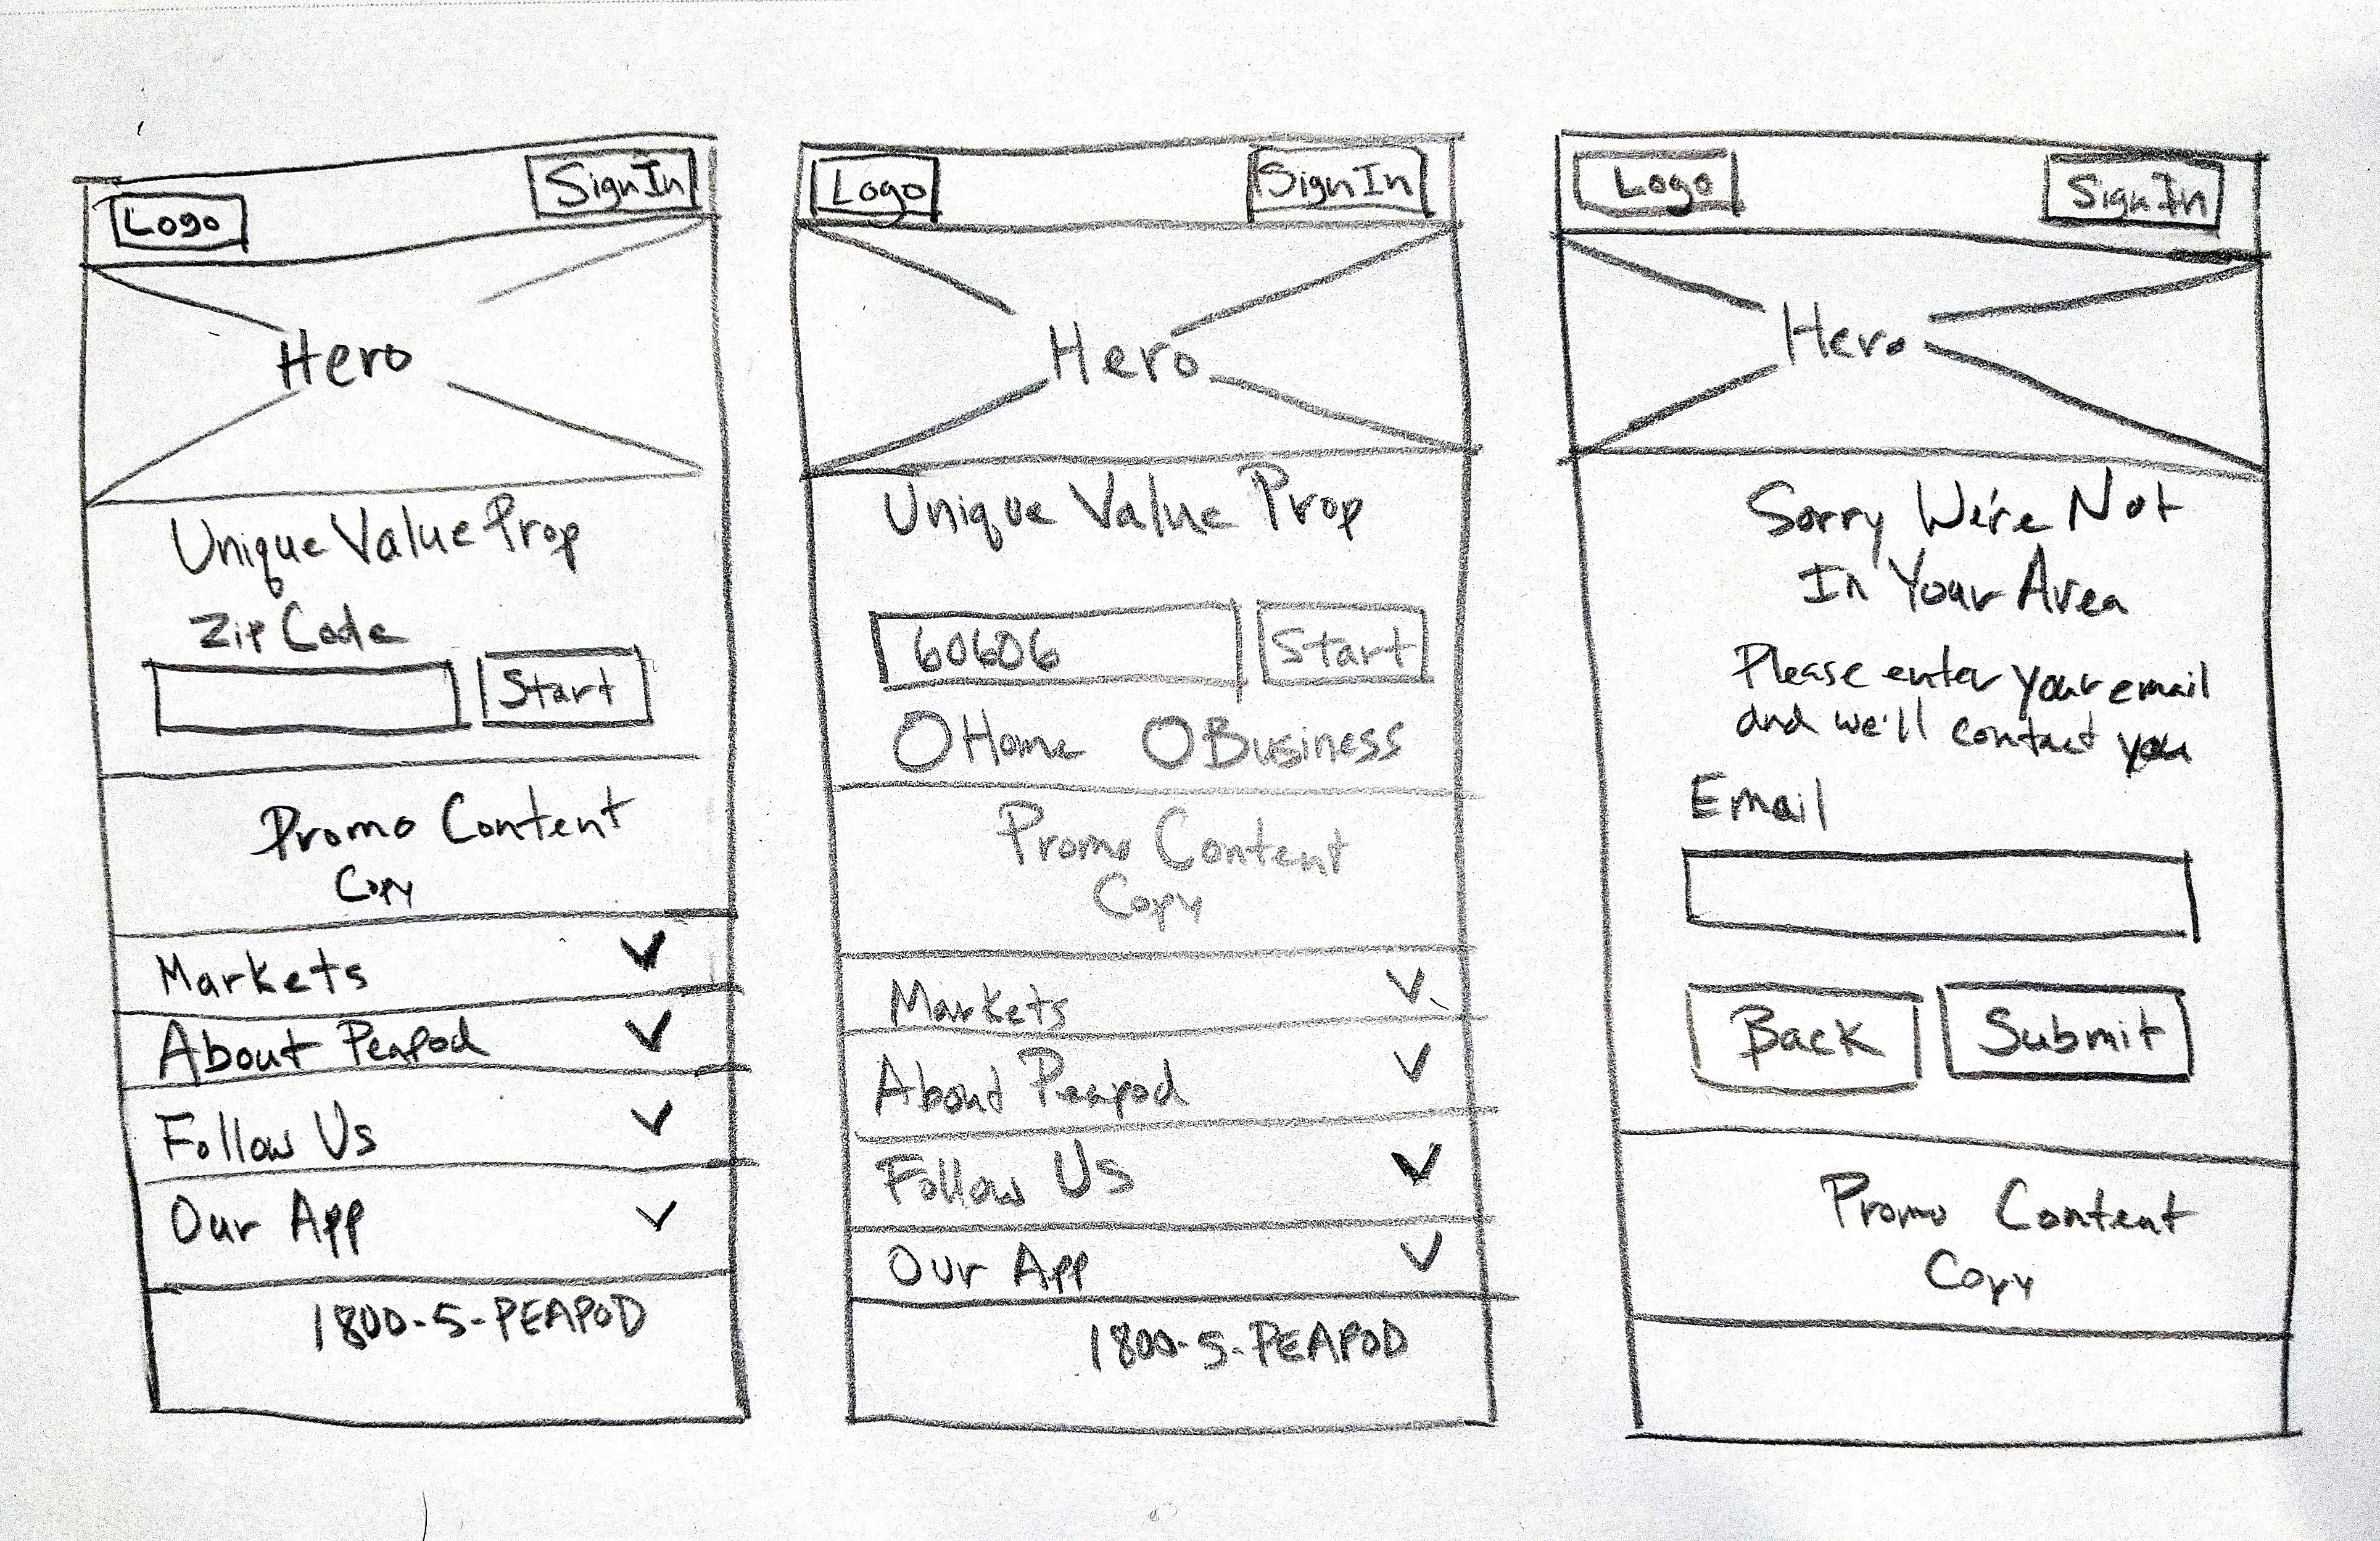 Logo
Sign In
Hero
Unique Value Prop
Zip Code
Start
Promo Content
Copy
Markets
About Peapod
Follow Us
Our App
1800-5-PEAPOD
Logo
Sign In
Hero
Unique Value Prop
60606
Start
Home
Business
Promo Content
Copy
Markets
About Peapod
Follow Us
Our App
1800-5-PEAPOD
Logo
Sign In
Hero
Sorry We're Not
In Your Area
Please enter your email
and we'll contact you
Email
Back
Submit
Promo Content
Copy